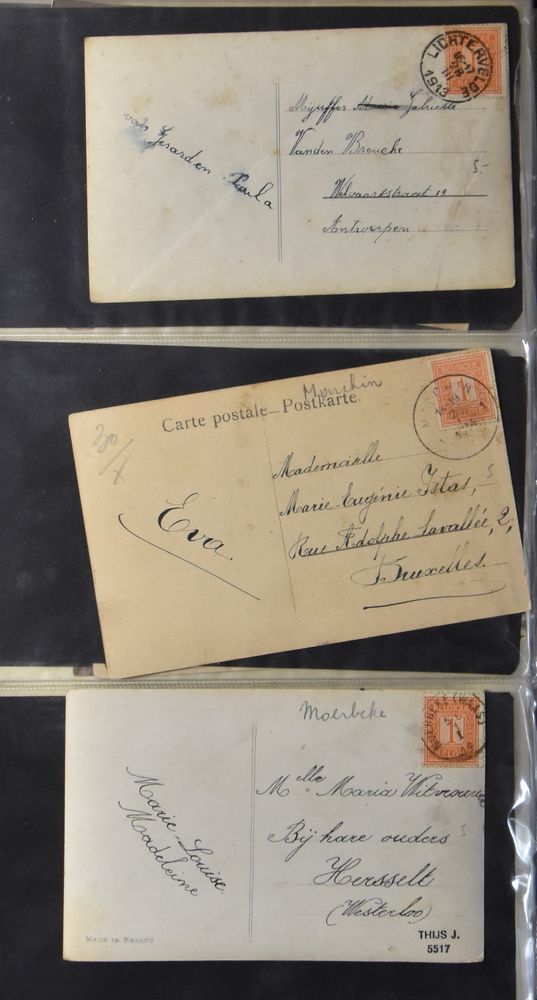 LICHTERVELDE
1913
Mejuffer Gabrielle
Vanden Broucke
Antwerpen
5-
van Gerarden Paula
Carte postale – Postkarte.
30/x
Mademoiselle
Marie-Eugénie Istas,
Rue Adolphe Lavallée, 2,
Bruxelles.
Eva
5
Moerbeke
MOERBEKE (WAAS)
1
Mlle Maria
Bij hare ouders
Hersselt
(Westerloo)
Marie-Louise
Madeleine
MADE IN FRANCE
THIJS J.
5517